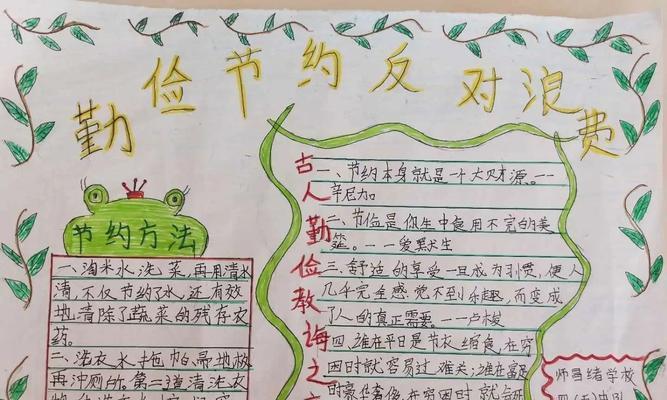 勤俭节约反对浪费
节约方法
一、淘米水洗菜,再用清水
清,不仅节约了水,还有效
地清除了蔬菜的残存农
药。
二、洗衣水拖帕、帚地板
再冲厕所。第二道清洗衣
古人勤俭教诲之
一、节约本身就是一个大财源。——
辛尼加
二、节俭是你生中食用不完的美
筵。——爱默生
三、舒适的享受一旦成为习惯,使人
几乎完全感觉不到乐趣,而变成
了人的真正需要。——卢梭
四、谁在平日是节衣缩食,在穷
困时就容易过难关;谁在富足
时豪华奢侈,在穷困时就会
师昌绪学校